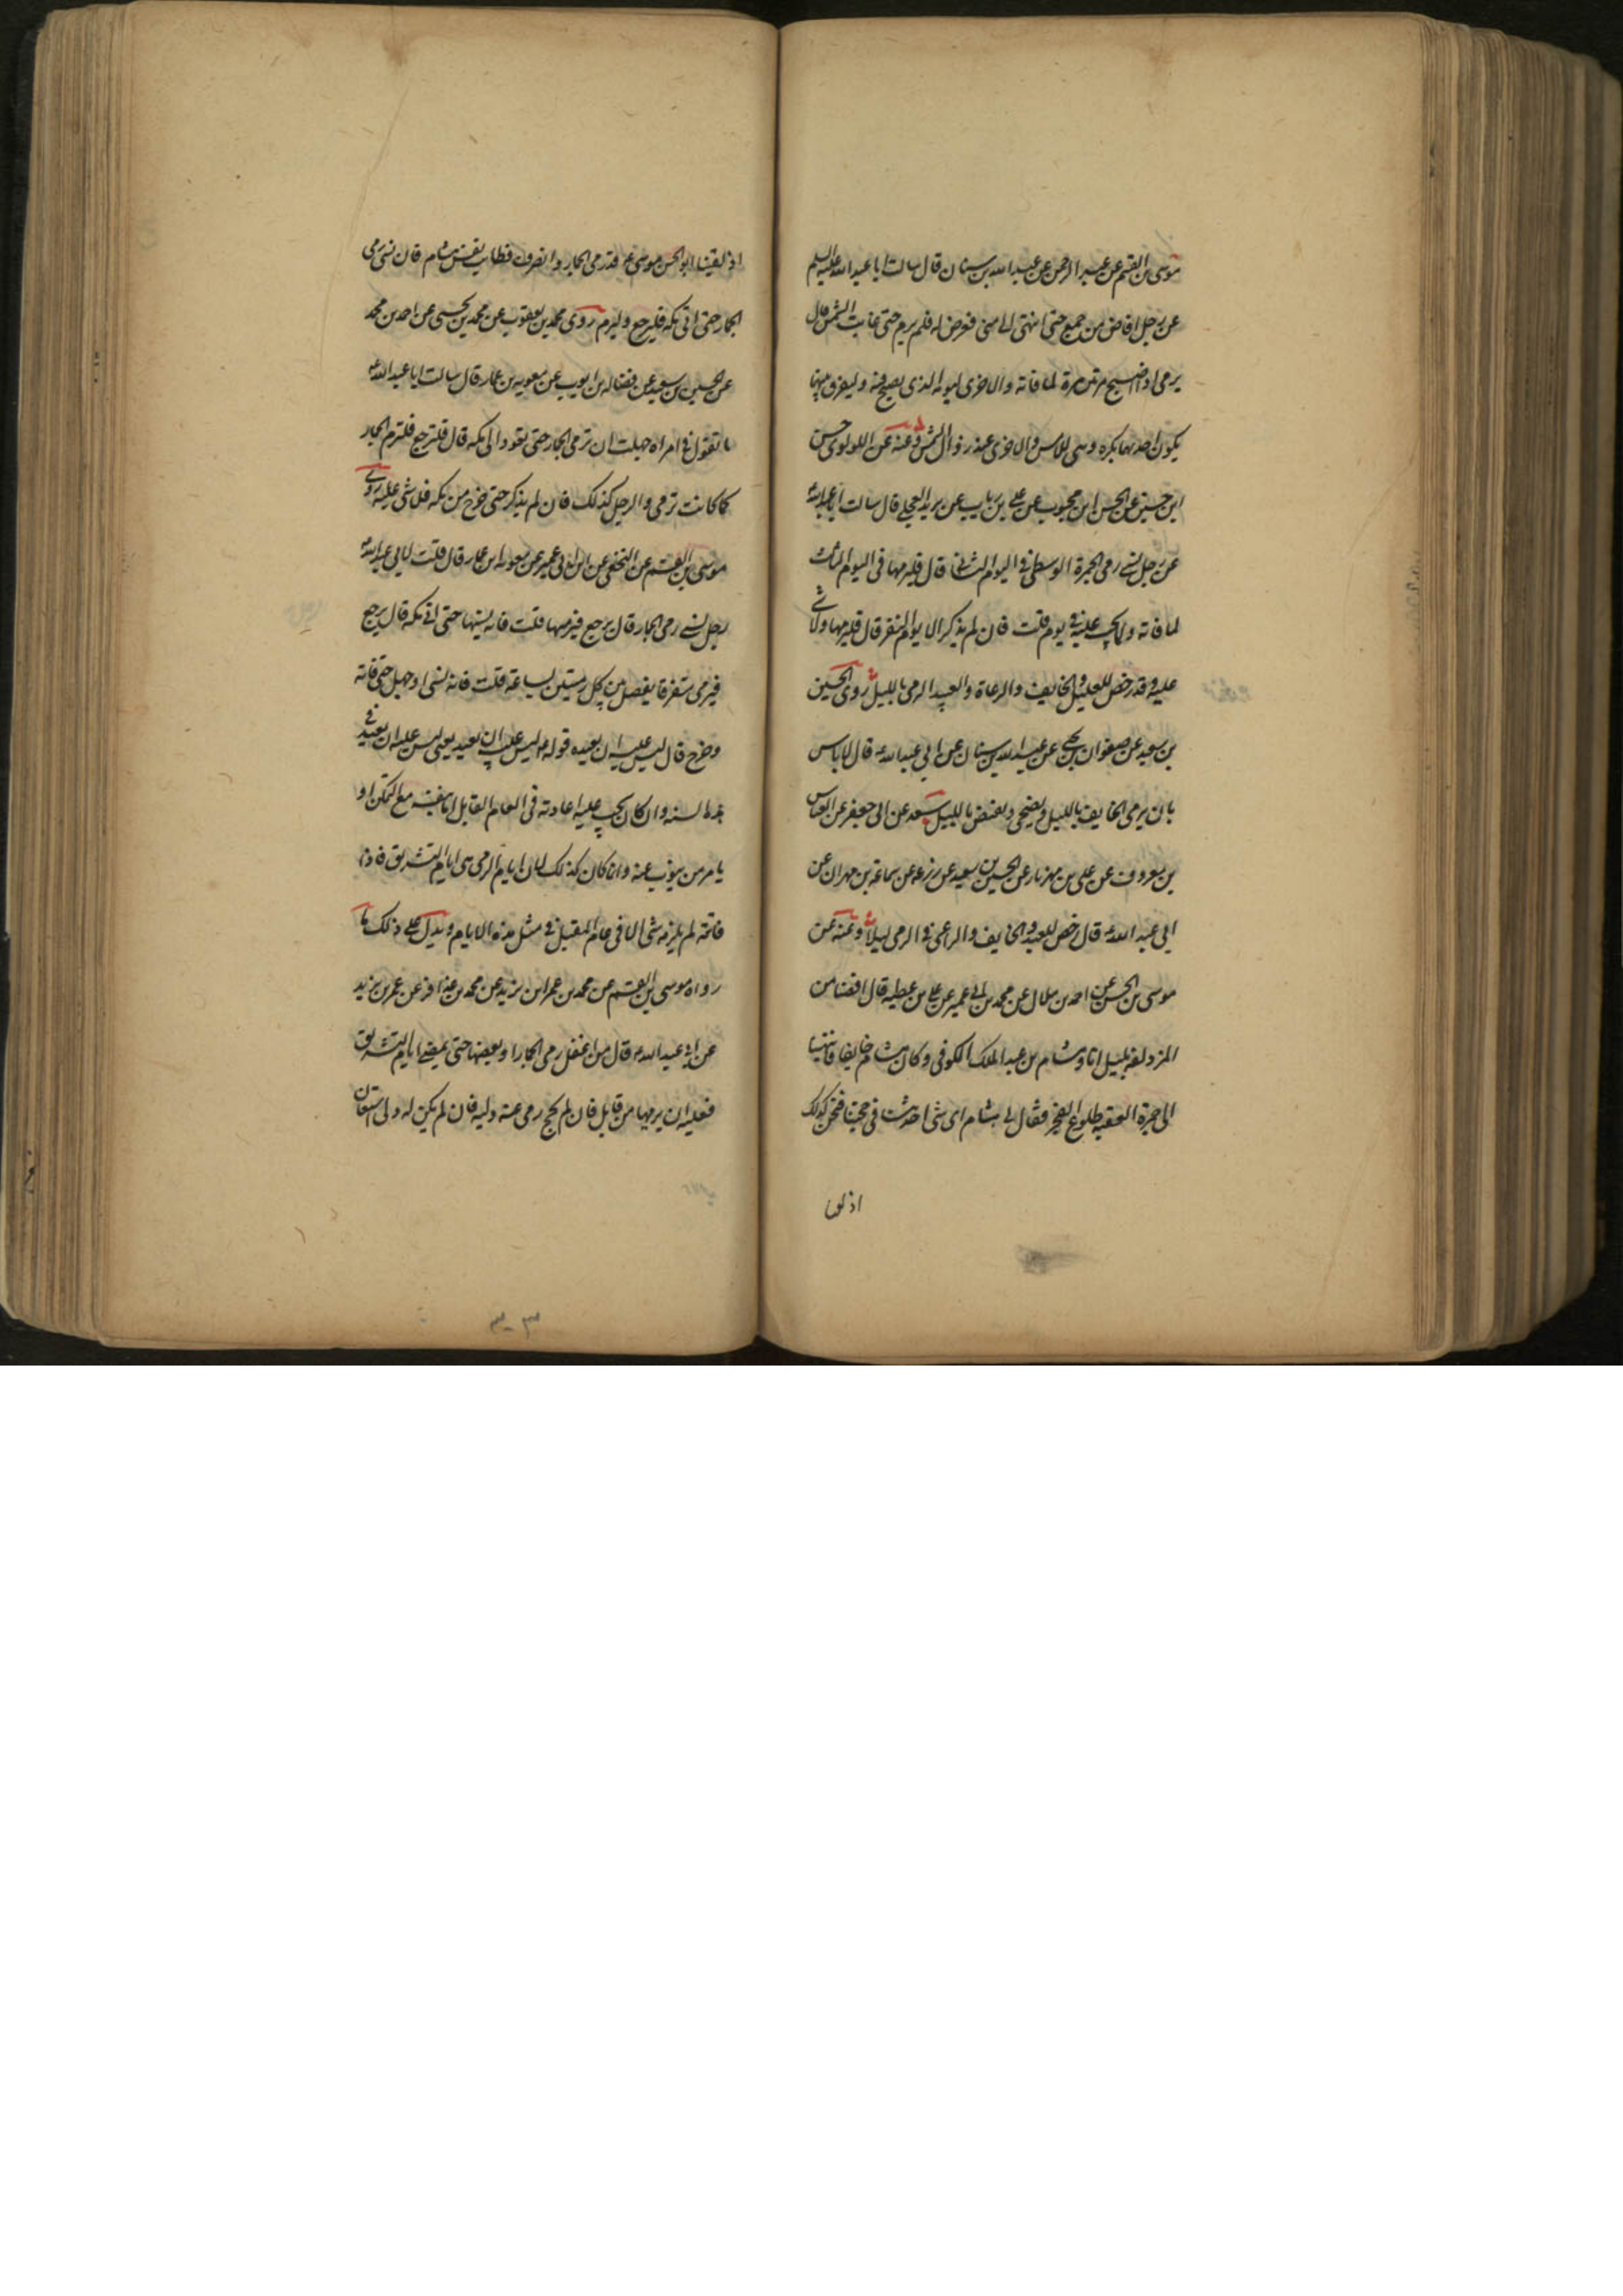 موسى بن القسم عن عبد الرحمن عن عبد الله بن سنان قال سالت ابا عبد الله عليه السلم
عن رجل افاض من جمع حتى انتهى الى منى فعرض له فلم يرم حتى غابت الشمس قال
يرمى اذا اصبح مرتين مرة لما فاته والاخرى ليومه الذى يصبح فيه وليفرق بينهما
يكون احدهما بكرة وهى للامس والاخرى عند زوال الشمس وعنه عن اللولوى حسن
ابن حسين عن الحسن ابن محبوب عن على بن رياب عن بريد العجلى قال سالت ابا عبد الله
عن رجل نسى رمى الجمرة الوسطى فى اليوم الثانى قال فليرمها فى اليوم الثالث
لما فاته ولما يجب عليه فى يومه قلت فان لم يذكر الا يوم النفر قال فليرمها ولا شى
عليه وقد رخص للعليل والخايف والرعاة والعبيد الرمى بالليل روى الحسين
بن سعيد عن صفوان بن يحيى عن عبد الله بن سنان عن ابى عبد الله ع قال لا باس
بان يرمى الخايف بالليل ويضحى ويفيض بالليل سعد عن ابى جعفر عن العباس
بن معروف عن على بن مهزيار عن الحسين بن سعيد عن زرعه عن سماعة بن مهران عن
ابى عبد الله ع قال رخص للعبد والخايف والراعى فى الرمى ليلا وعنه عن
موسى بن الحسن عن احمد بن هلال عن محمد بن ابى عمير عن على بن عطيه قال افضنا من
المزدلفه بليل انا وهشام بن عبد الملك الكوفى وكان هشام خايفا فانتهينا
الى جمرة العقبه طلوع الفجر فقال لى هشام اى شى احدثنا فى حجتنا فنحن كذلك
اذ لقينا
اذ لقينا ابو الحسن موسى ع قد رمى الجمار وانصرف فطابت نفس هشام فان نسى رمى
الجمار حتى اتى مكه فليرجع وليرم روى محمد بن يعقوب عن محمد بن يحيى عن احمد بن محمد
عن الحسين بن سعيد عن فضاله بن ايوب عن معويه بن عمار قال سالت ابا عبد الله ع
ما تقول فى امراه جهلت ان ترمى الجمار حتى تعود الى مكه قال فلترجع فلترم الجمار
كما كانت ترمى والرجل كذلك فان لم يذكر حتى خرج من مكه فلا شى عليه روى
موسى بن القسم عن النخعى عن ابن ابى عمير عن معويه ابن عمار قال قلت لابى عبد الله ع
رجل نسى رمى الجمار قال يرجع فيرميها قلت فانه نسيها حتى اتى مكه قال يرجع
فيرمى متفرقا يفصل بين كل رميتين بساعة قلت فانه نسى او جهل حتى فاته
وخرج قال ليس عليه ان يعيده قوله ع ليس عليه ان يعيد يعنى ليس عليه ان يعيد فى
هذه السنه وان كان يجب عليه اعادته فى العام القابل اما بنفسه مع التمكن او
يامر من ينوب عنه وانما كان كذلك لان ايام الرمى هى ايام التشريق فاذا
فاتته لم يلزمه شى الا فى عام المقبل فى مثل هذه الايام ويدل على ذلك ما
رواه موسى ابن القسم عن محمد بن عمر ابن يزيد عن محمد بن عذافر عن عمر بن يزيد
عن ابى عبد الله ع قال من اغفل رمى الجمار او بعضها حتى تمضى ايام التشريق
فعليه ان يرميها من قابل فان لم يحج رمى عنه وليه فان لم يكن له ولى استعان